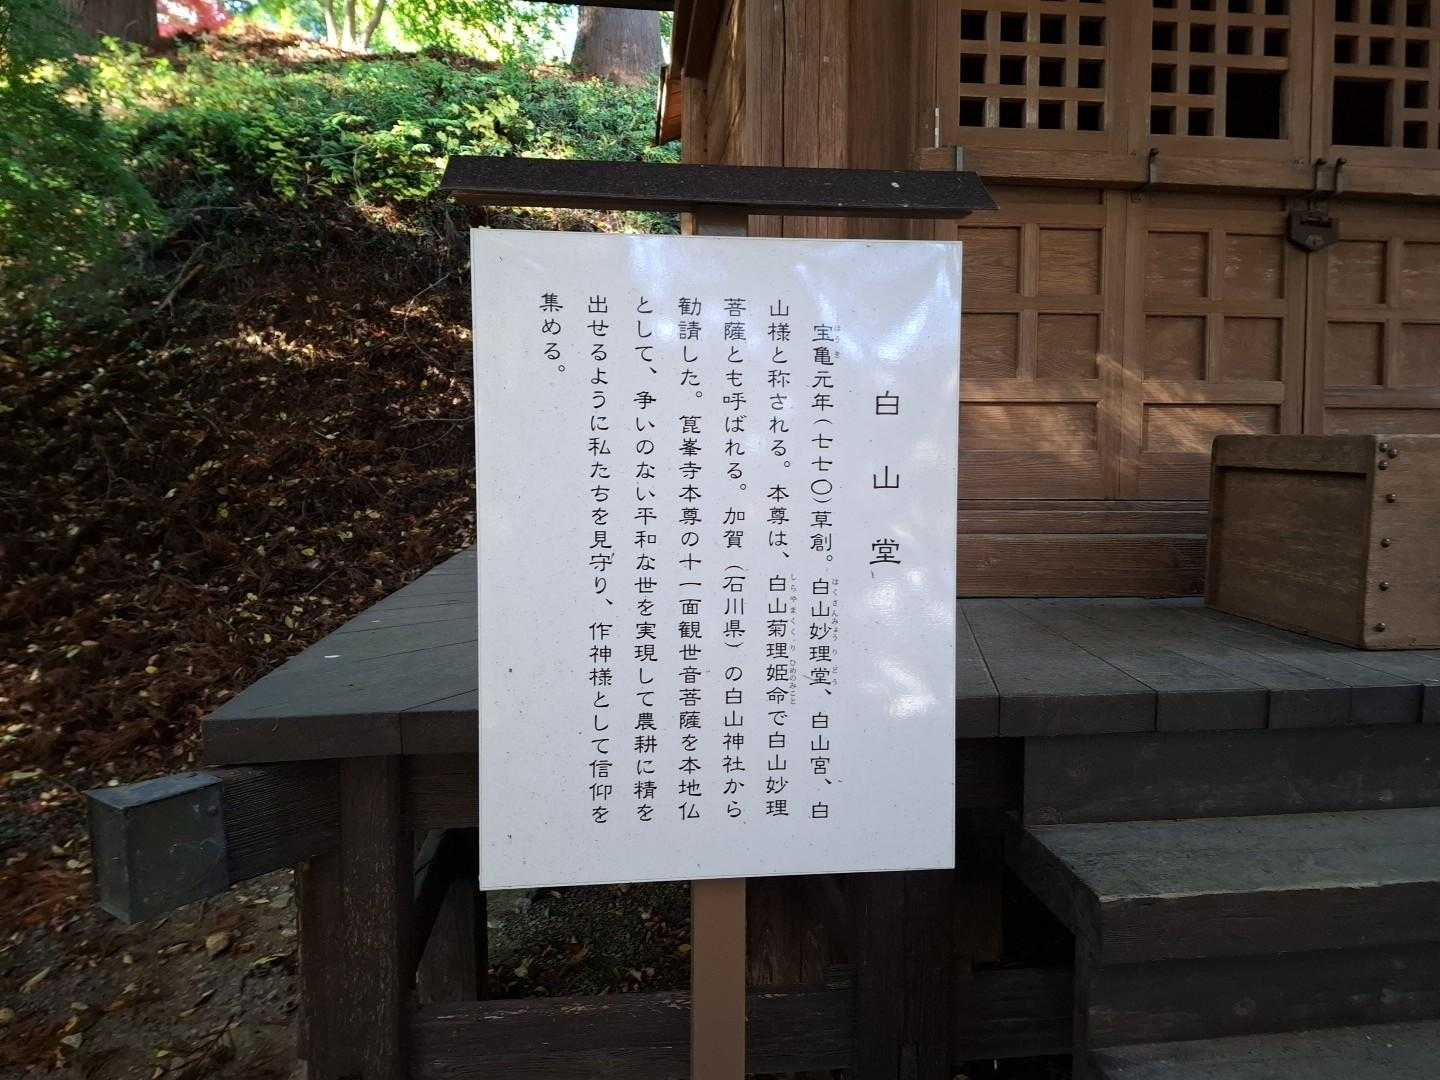 白山堂
宝亀元年(七七〇)草創。白山妙理堂、白山宮、白
山様と称される。本尊は、白山菊理姫命で白山妙理
菩薩とも呼ばれる。加賀(石川県)の白山神社から
勧請した。箟峯寺本尊の十一面観世音菩薩を本地仏
として、争いのない平和な世を実現して農耕に精を
出せるように私たちを見守り、作神様として信仰を
集める。
ほうき
はくさんみょうりどう
しらやまくくりひめのみこと